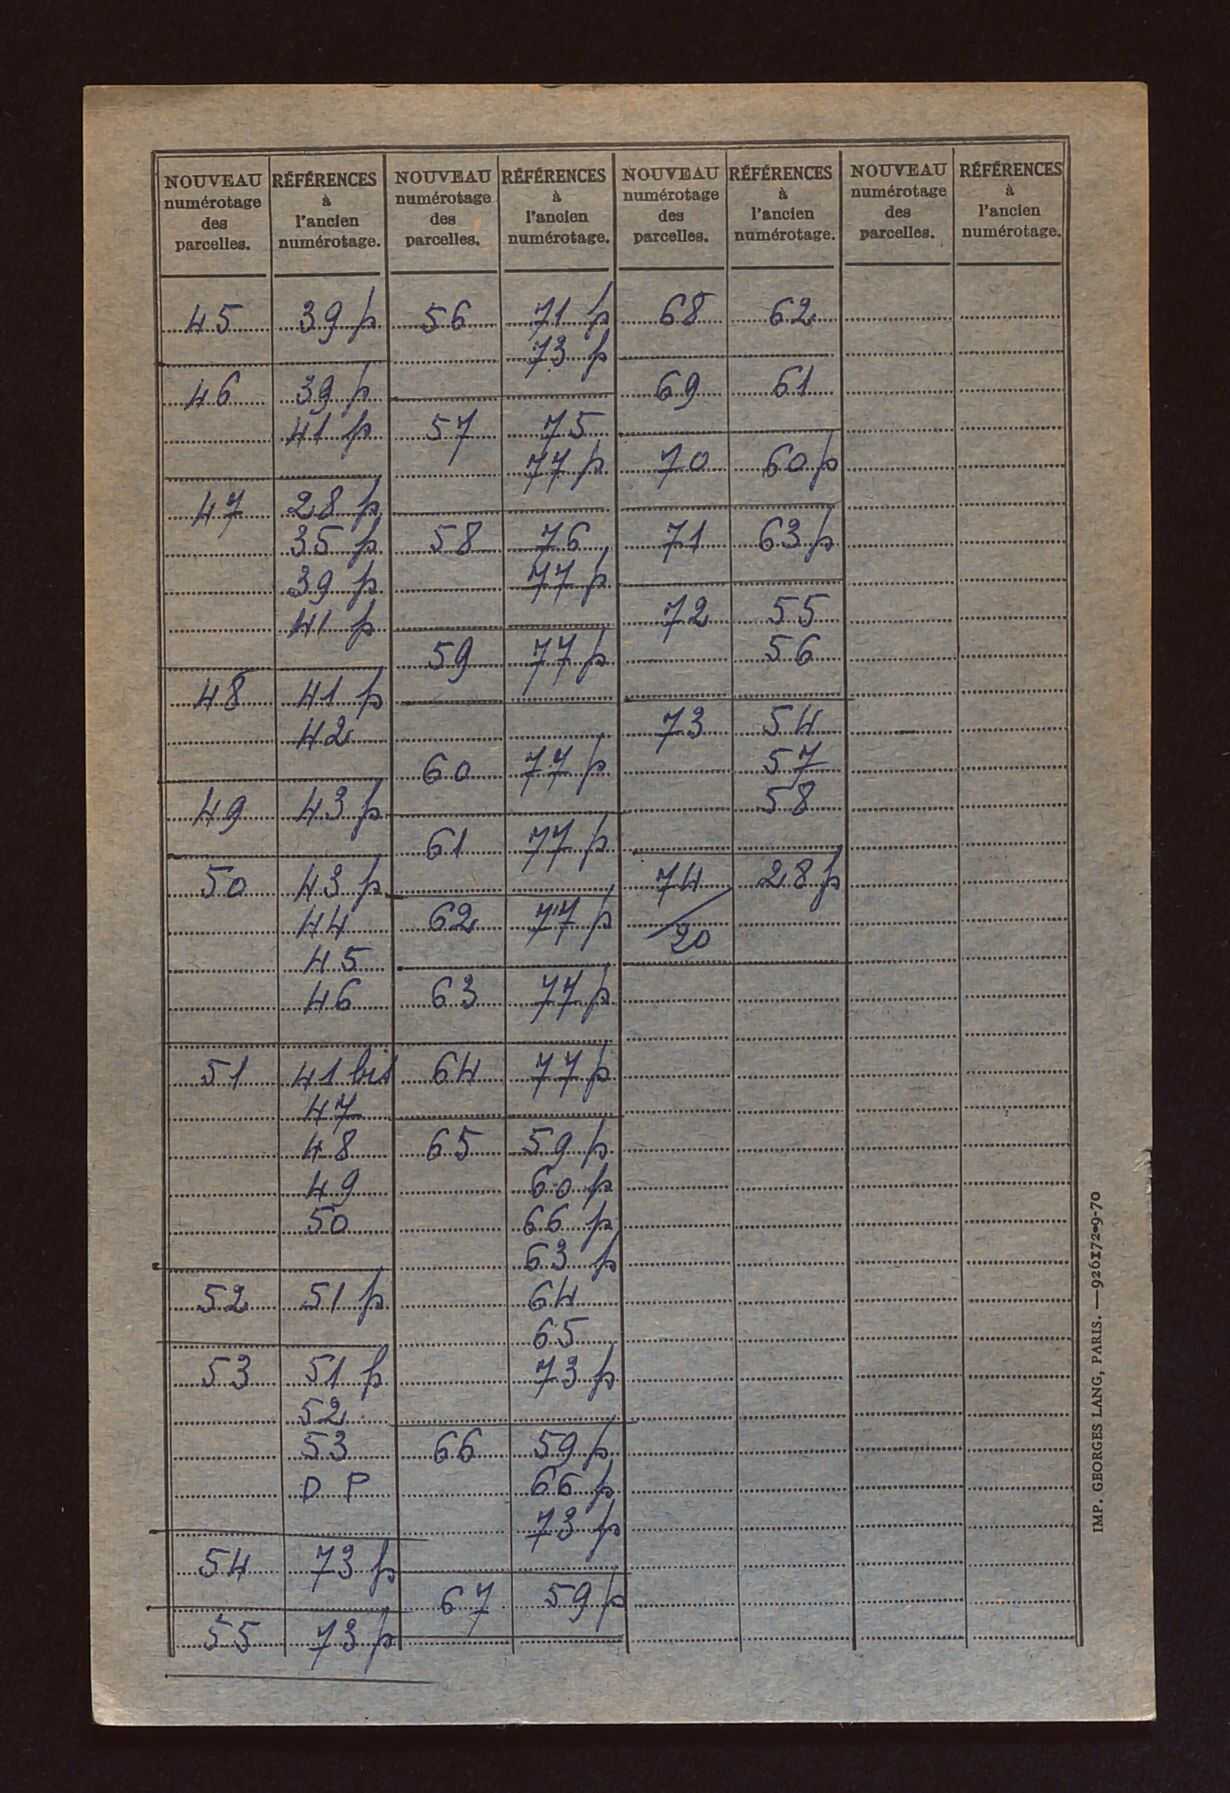 NOUVEAU numérotage des parcelles. | RÉFÉRENCES à l'ancien numérotage.
45 | 39 p
46 | 39 p
41 p
47 | 28 p
35 p
39 p
41 p
48 | 41 p
42
49 | 43 p
50 | 43 p
44
45
46
51 | 41 bis
47
48
49
50
52 | 51 p
53 | 51 p
52
53
D P
54 | 73 p
55 | 73 p
NOUVEAU numérotage des parcelles. | RÉFÉRENCES à l'ancien numérotage.
56 | 71 p
73 p
57 | 75
77 p
58 | 76
77 p
59 | 77 p
60 | 77 p
61 | 77 p
62 | 77 p
63 | 77 p
64 | 77 p
65 | 59 p
60 p
66 p
63 p
64
65
73 p
66 | 59 p
66 p
73 p
67 | 59 p
NOUVEAU numérotage des parcelles. | RÉFÉRENCES à l'ancien numérotage.
68 | 62
69 | 61
70 | 60 p
71 | 63 p
72 | 55
56
73 | 54
57
58
74 | 28 p
/
20
NOUVEAU numérotage des parcelles. | RÉFÉRENCES à l'ancien numérotage.
IMP. GEORGES LANG, PARIS. — 926172-9-70